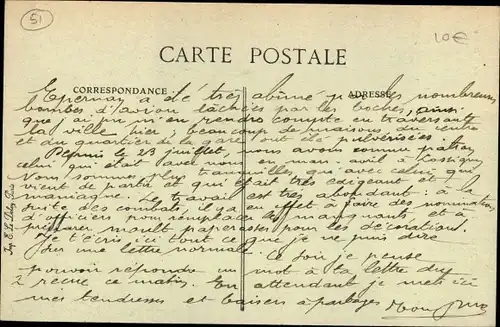 51
10€
CARTE POSTALE
CORRESPONDANCE
ADRESSE
Epernay a été très abîmé par les nombreuses
bombes d'avion lâchées par les boches, ainsi
que j'ai pu m'en rendre compte en traversant
la ville hier; beaucoup de maisons du centre
et du quartier de la gare ont été pulvérisées.
Depuis le 23 juillet nous avons comme patron
celui qui était avec nous en mars avril à Lassigny
Nous sommes plus tranquilles qu'avec celui qui
vient de partir et qui était très exigeant et
maniaque. Le travail est très abondant: à la
suite des combats il y a en effet à faire des nominations
d'officiers pour remplacer les manquants et à
préparer moult paperasses pour les décorations.
Je t'écris ici tout ce que je ne puis dire
sur une lettre normale. Ce soir je pense
pouvoir répondre un mot à la lettre du
2 reçue ce matin. En attendant je mets ici
mes tendresses et baisers à partager. Ton
Imp. E. Le Deley, Paris